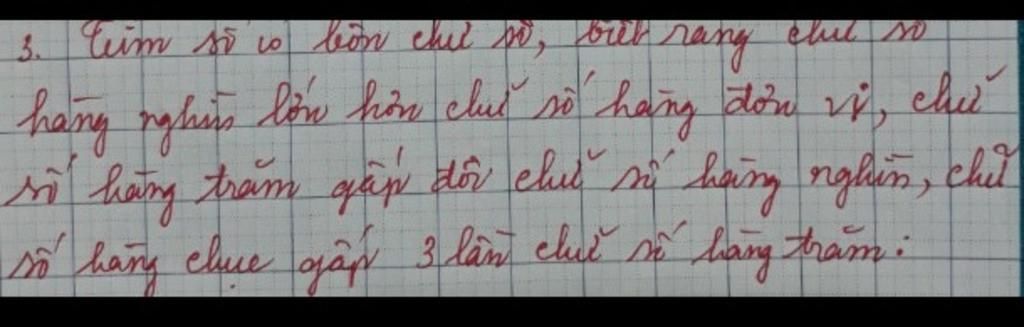 3. Tìm số có bốn chữ số, biết rằng chữ số
hàng nghìn lớn hơn chữ số hàng đơn vị, chữ
số hàng trăm gấp đôi chữ số hàng nghìn, chữ
số hàng chục gấp 3 lần chữ số hàng trăm.